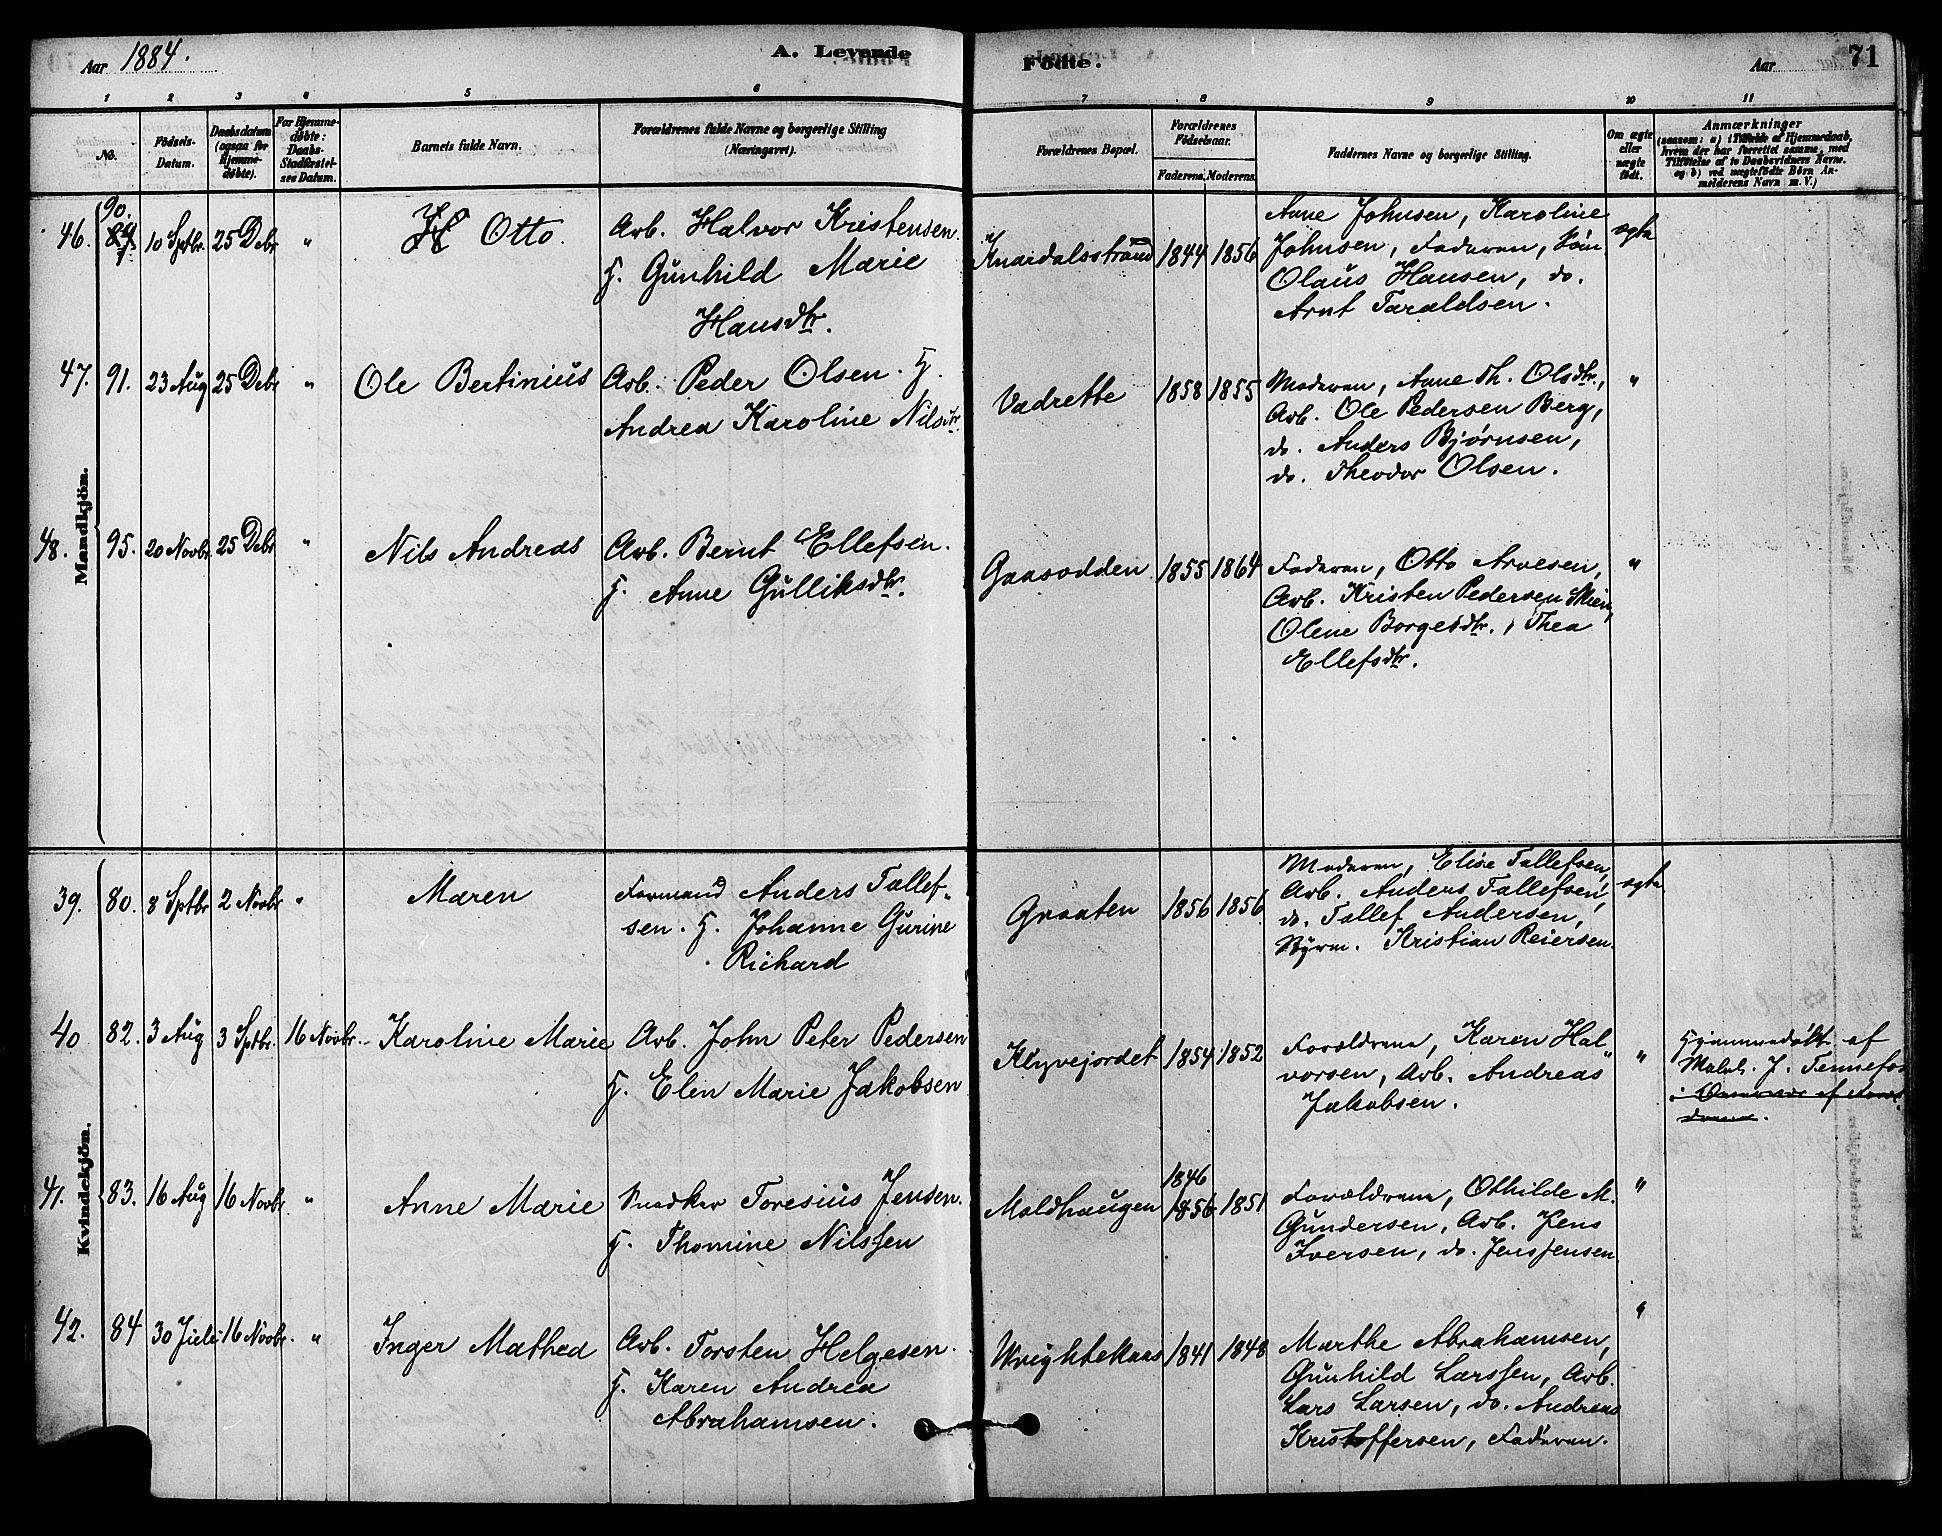 Aar 1884.
A. Levende
Födte.
Aar
71
1 2 3 4 5 6 7 8 9 10 11
No.
Födsels-
Datum.
Daabsdatum
(ogsaa for
Hjemme-
döbte).
For Hjemme-
döbte:
Daabs-
Stadfæstel-
ses Datum.
Barnets fulde Navn.
Forældrenes fulde Navne og borgerlige Stilling
(Næringsvei).
Forældrenes Bopæl.
Forældrenes
Födselsaar.
Faderens. Moderens.
Faddernes Navne og borgerlige Stilling.
Om ægte
eller
uægte
födt.
Anmærkninger
(saasom: a) i Tilfælde af Hjemmedaab,
hvem der har forrettet samme, med
Tilföielse af to Daabsvidners Navne,
og b) ved uægtefödte Börn An-
melderens Navn m. V.)
Mandkjön.
46. 90. 10 Sptbr. 25 Debr "
Otto.
Arb. Halvor Kristensen.
H. Gunhild Marie
Hansdtr.
Knardalsstrand 1844 1856
Anne Johnsen, Karoline
Johnsen, Faderen, Søm.
Olaus Hansen, do.
Arnt Taraldsen.
ægte
47. 91. 23 Aug 25 Debr "
Ole Bertinius
Arb. Peder Olsen. H.
Andrea Karoline Nilsdtr.
Vadrette 1858 1855
Moderen, Anne Th. Olsdtr.,
Arb. Ole Pedersen Berg,
do. Anders Bjørnsen,
do. Theodor Olsen.
"
48. 95. 20 Novbr. 25 Debr "
Nils Andreas
Arb. Bernt Ellefsen.
H. Anne Gulliksdtr.
Gaasodden 1855 1864
Faderen, Otto Arvesen,
Arb. Kristen Pedersen Skien,
Olene Borgesdtr., Thea
Ellefsdtr.
"
Kvindekjön.
39. 80. 8 Sptbr 2 Novbr "
Maren
Formand Anders Tallef-
sen. H. Johanne Gurine
Richard
Graaten 1856 1856
Moderen, Elise Tallefsen,
Arb. Anders Tallefsen,
do. Tallef Andersen,
Styrm. Kristian Reiersen.
ægte
40 82. 3 Aug 3 Sptbr. 16 Novbr.
Karoline Marie
Arb. John Peter Pedersen
H. Elen Marie Jakobsen
Klyvejordet 1854 1852
Forældrene, Karen Hal-
vorsen, Arb. Andreas
Jakobsen.
"
Hjemmedøbt af
J. Tennefos
41. 83. 16 Aug 16 Novbr. "
Anne Marie
Snedker Toresius Jensen.
H. Thomine Nilssen
Moldhaugen 1846
1856 1851
Forældrene, Othilde M.
Gundersen, Arb. Jens
Iversen, do. Jens Jensen
"
42. 84 30 Juli 16 Novbr. "
Inger Mathea
Arb. Torsten Helgesen.
H. Karen Andrea
Abrahamsen.
Wrightekaas 1841 1848
Marthe Abrahamsen,
Gunhild Larssen, Arb.
Lars Larsen, do. Andreas
Kristoffersen, Faderen.
"